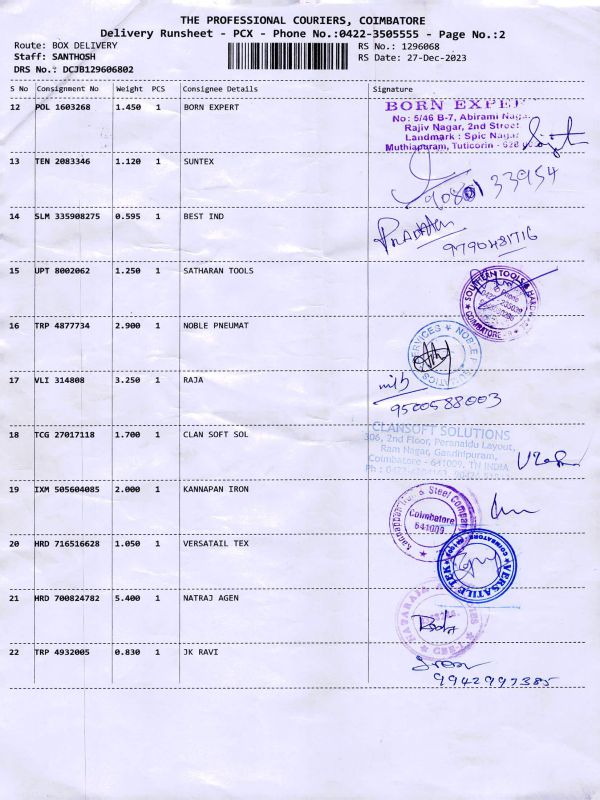 THE PROFESSIONAL COURIERS, COIMBATORE
Delivery Runsheet - PCX - Phone No.:0422-3505555 - Page No.:2
Route: BOX DELIVERY RS No.: 1296068
Staff: SANTHOSH RS Date: 27-Dec-2023
DRS No.: DCJB129606802
S No Consignment No Weight PCS Consignee Details Signature
12 POL 1603268 1.450 1 BORN EXPERT
BORN EXPERT
No: 5/46 B-7, Abirami Nagar
Rajiv Nagar, 2nd Street
Landmark : Spic Nagar
Muthiapuram, Tuticorin - 628
13 TEN 2083346 1.120 1 SUNTEX
33954
14 SLM 335908275 0.595 1 BEST IND
9790481716
15 UPT 8002062 1.250 1 SATHARAN TOOLS
SOUTHERN TOOLS & HARD
COIMBATORE
16 TRP 4877734 2.900 1 NOBLE PNEUMAT
NOBLE
SERVICES
17 VLI 314808 3.250 1 RAJA
9500588003
18 TCG 27017118 1.700 1 CLAN SOFT SOL
CLANSOFT SOLUTIONS
306, 2nd Floor, Peranaidu Layout,
Ram Nagar, Gandhipuram,
Coimbatore - 641009. TN INDIA
19 IXM 505604085 2.000 1 KANNAPAN IRON
Kannappan Iron & Steel Company
Coimbatore
641009
20 HRD 716516628 1.050 1 VERSATAIL TEX
VERSATILE TEK
COIMBATORE
21 HRD 700824782 5.400 1 NATRAJ AGEN
22 TRP 4932005 0.830 1 JK RAVI
9942997385